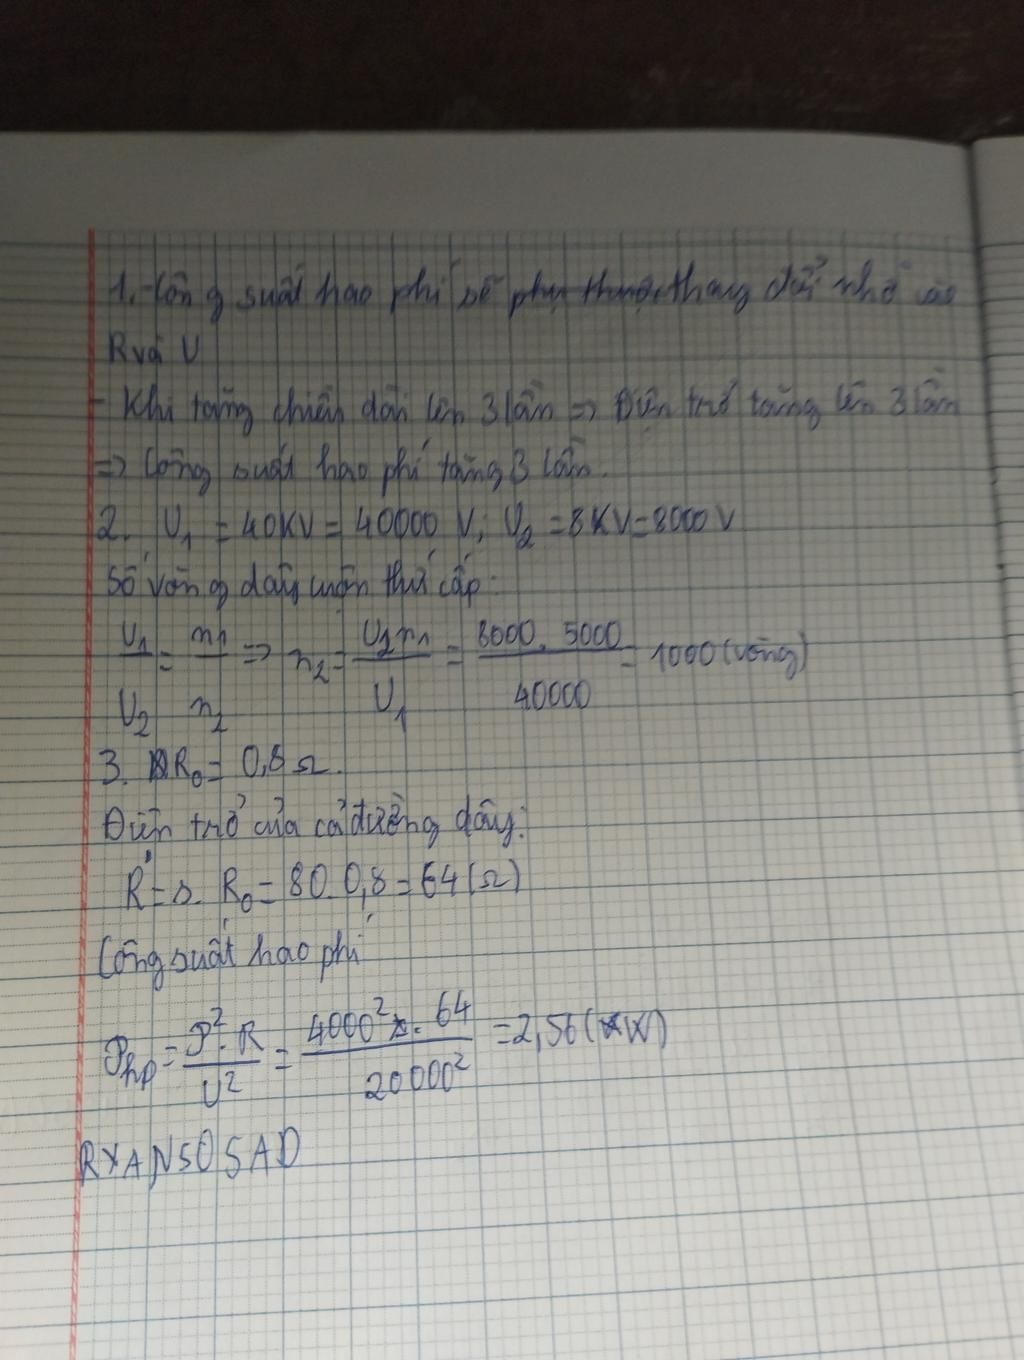 1. Công suất hao phí sẽ phụ thuộc thay đổi nhờ vào
R và U
- Khi tăng chiều dài lên 3 lần => Điện trở tăng lên 3 lần
=> Công suất hao phí tăng 3 lần.
2. U₁ = 40KV = 40000 V; U₂ = 8KV = 8000 V
Số vòng dây cuộn thứ cấp:
U₁/U₂ = n₁/n₂ => n₂ = U₂n₁/U₁ = 8000. 5000/40000 = 1000 (vòng)
3. R₀ = 0,8 Ω.
Điện trở của cả đường dây:
R = s. R₀ = 80. 0,8 = 64 (Ω)
Công suất hao phí
𝒫hp = 𝒫². R/U² = 4000². 64/20000² = 2,56 (W)
RYANSOSAD